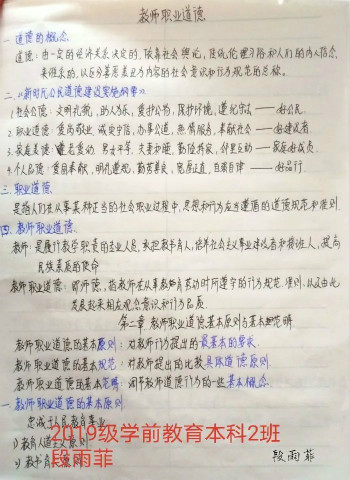 教师职业道德
一.道德的概念
道德:由一定的经济关系决定的,依靠社会舆论,传统伦理习俗和人们的内心信念
来维系的,以区分善恶表达为内容的社会意识和行为规范的总称。
二.《新时代公民道德建设实施纲要》
1.社会公德:文明礼貌,助人为乐,爱护公物,保护环境,遵纪守法——好公民.
2.职业道德:爱岗敬业,诚实守信,办事公道,热情服务,奉献社会——好建设者.
3.家庭美德:尊老爱幼,男女平等,夫妻和睦,勤俭持家,邻里互助——家庭好成员.
4.个人品德:爱国奉献,明礼遵规,勤劳善良,宽厚正直,自强自律——好品行.
三.职业道德
是指人们在从事某种正当的社会职业过程中,思想和行为应当遵循的道德规范和准则.
四.教师职业道德.
教师:是履行教学职责的专业人员,承担教书育人,培养社会主义事业建设者和接班人,提高
民族素质的使命
教师职业道德:即师德,指教师在从事教育劳动时所遵守的行为规范、准则,以及由此
发展起来相应观念意识和行为品质
第二章 教师职业道德基本原则与基本范畴
教师职业道德的基本原则:对教师行为提出的最基本的要求.
教师职业道德的基本规范:对教师提出的比较具体道德原则.
教师职业道德的基本范畴:阐释教师道德行为的一些基本概念.
一.教师职业道德的基本原则.
忠诚于人民教育事业
1)教育人道主义原则
2)教书育人原则
2019级学前教育本科2班
段雨菲
段雨菲